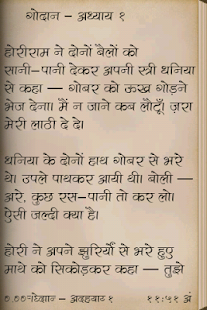 गोदान – अध्याय १
होरीराम ने दोनों बैलों को
सानी-पानी देकर अपनी स्त्री धनिया
से कहा — गोबर को ऊख गोड़ने
भेज देना। मैं न जाने कब लौटूँ। ज़रा
मेरी लाठी दे दे।
धनिया के दोनों हाथ गोबर से भरे
थे। उपले पाथकर आयी थी। बोली —
अरे, कुछ रस-पानी तो कर लो।
ऐसी जल्दी क्या है।
होरी ने अपने झुरिर्यों से भरे हुए
माथे को सिकोड़कर कहा — तुझे
१